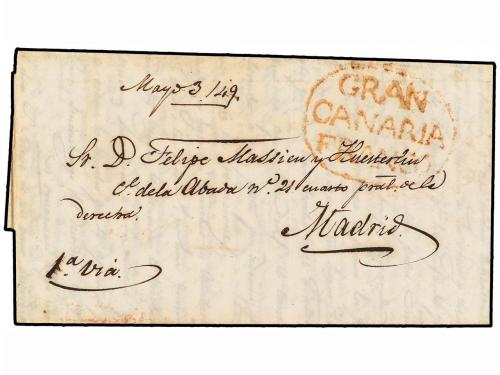 Mayo 3/49.
GRAN
CANARIA
FRANCO
Sr. D. Felipe Massieu y
C.e de la Abada n.o 21 cuarto pral. de la
derecha.
Madrid.
1.a via.